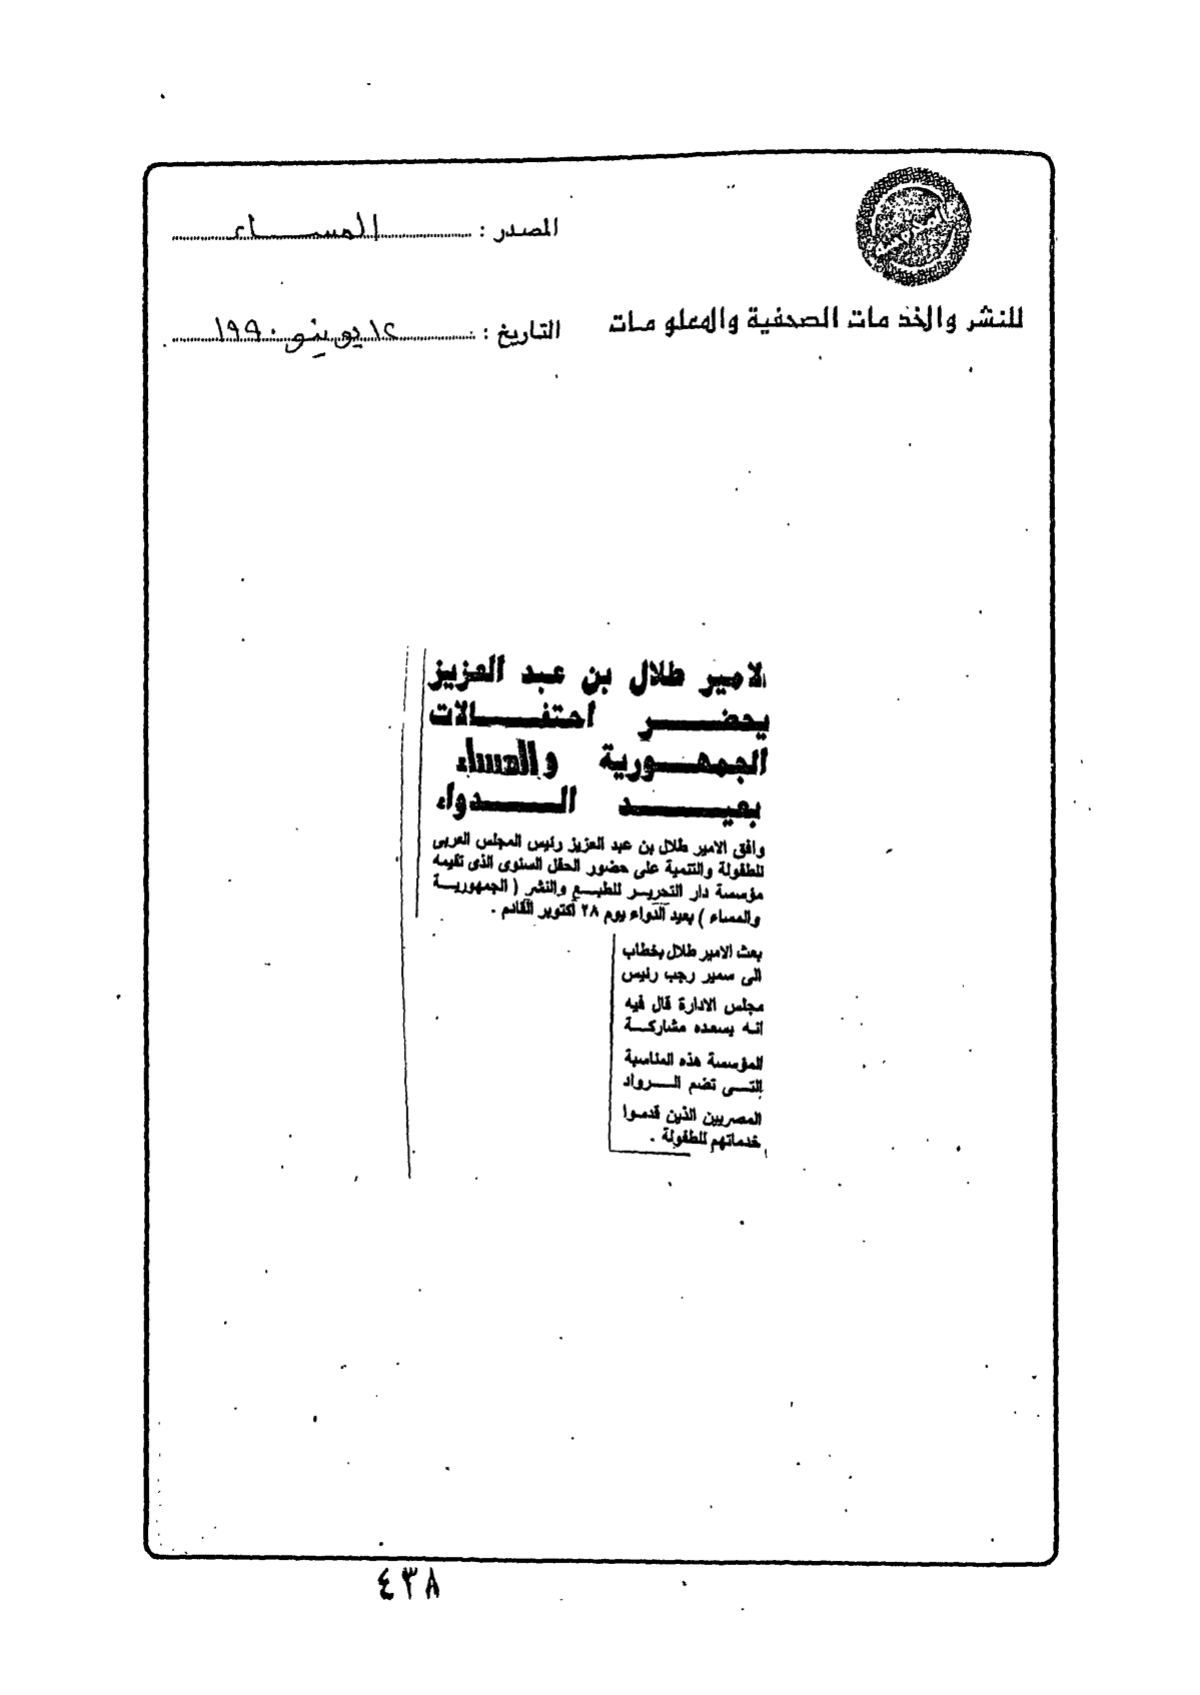 المصدر : المساء
للنشر والخدمات الصحفية والمعلومات
التاريخ : ١٢ يونيو ١٩٩٠
الامير طلال بن عبد العزيز
يحضر احتفالات
الجمهورية والمساء
بعيد الدواء
وافق الامير طلال بن عبد العزيز رئيس المجلس العربى
للطفولة والتنمية على حضور الحفل السنوى الذى تقيمه
مؤسسة دار التحرير للطبع والنشر ( الجمهورية
والمساء ) بعيد الدواء يوم ٢٨ أكتوبر القادم .
بعث الامير طلال بخطاب
الى سمير رجب رئيس
مجلس الادارة قال فيه
انه يسعده مشاركة
المؤسسة هذه المناسبة
التى تضم الرواد
المصريين الذين قدموا
خدماتهم للطفولة .
٤٣٨